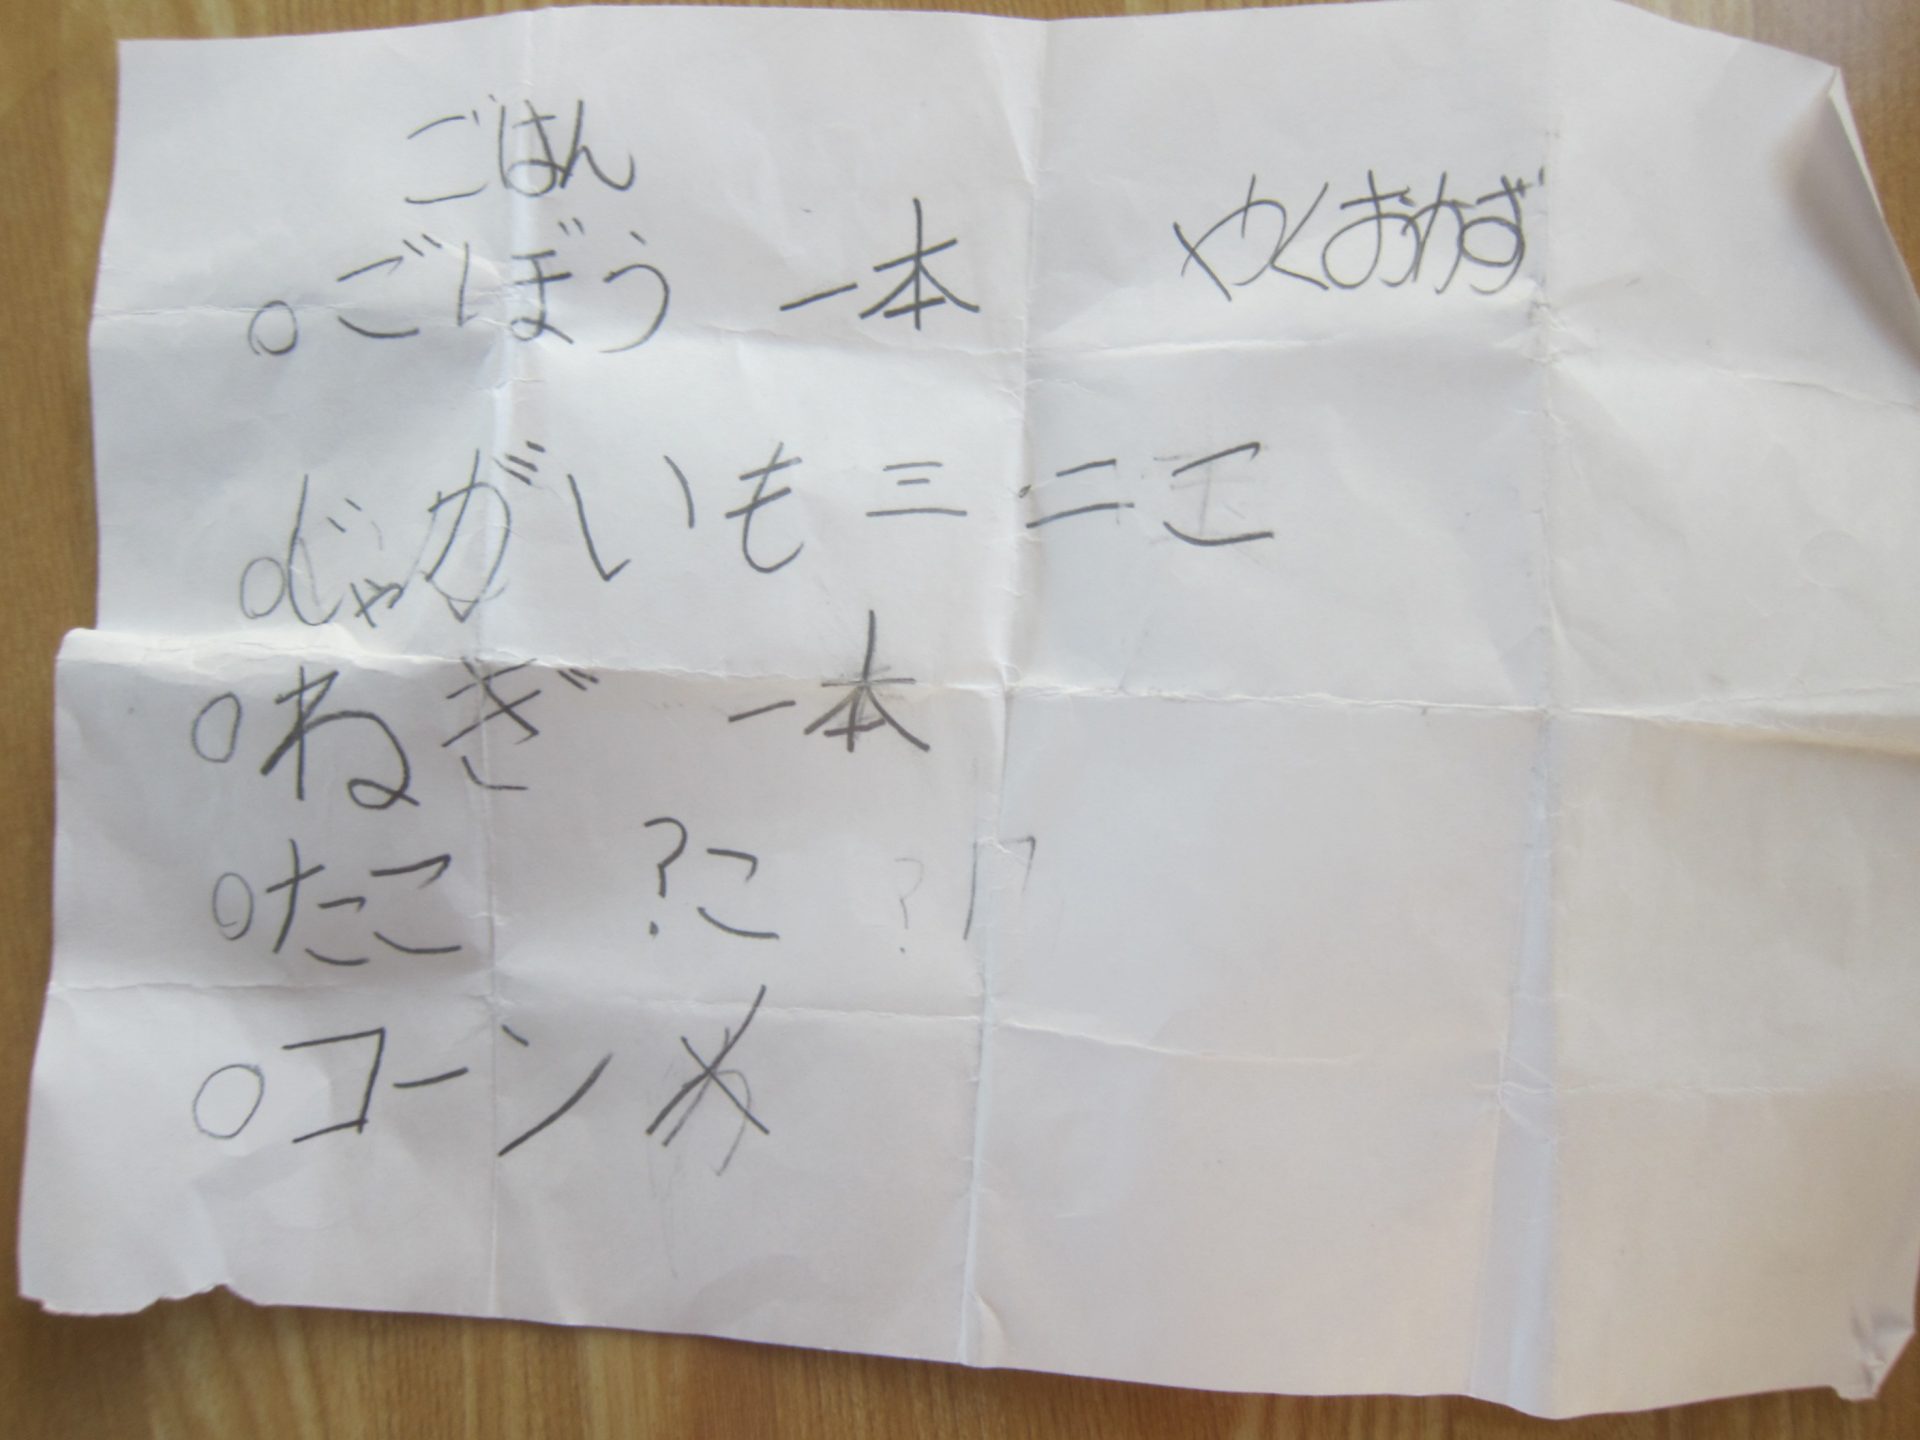 ごはん
やくおかず
○ごぼう 一本
○じゃがいも 三・二こ
○ねぎ 一本
○たこ ?こ ?
○コーン